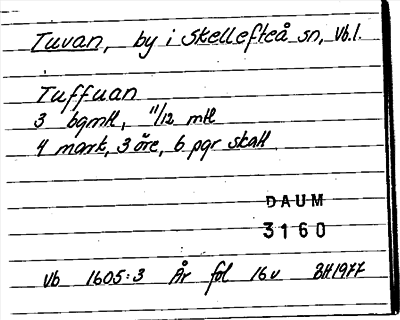 Tuvan, by i Skellefteå sn, Vb.l.
Tuffuan
3 bgmtl, 11/12 mtl
4 mark, 3 öre, 6 pgr skatt
DAUM
3160
Vb 1605:3 År fol 16v BH.1977